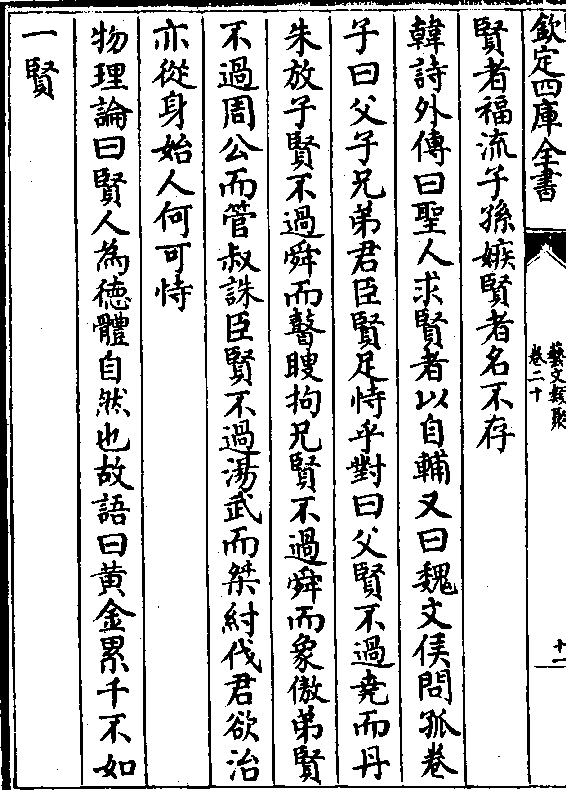 欽定四庫全書
藝文類聚
卷二十
十一
賢者福流子孫嫉賢者名不存
韓詩外傳曰聖人求賢者以自輔又曰魏文侯問孤卷
子曰父子兄弟君臣賢足恃乎對曰父賢不過堯而丹
朱放子賢不過舜而瞽瞍拘兄賢不過舜而象傲弟賢
不過周公而管叔誅臣賢不過湯武而桀紂伐君欲治
亦從身始人何可恃
物理論曰賢人為德體自然也故語曰黃金累千不如
一賢